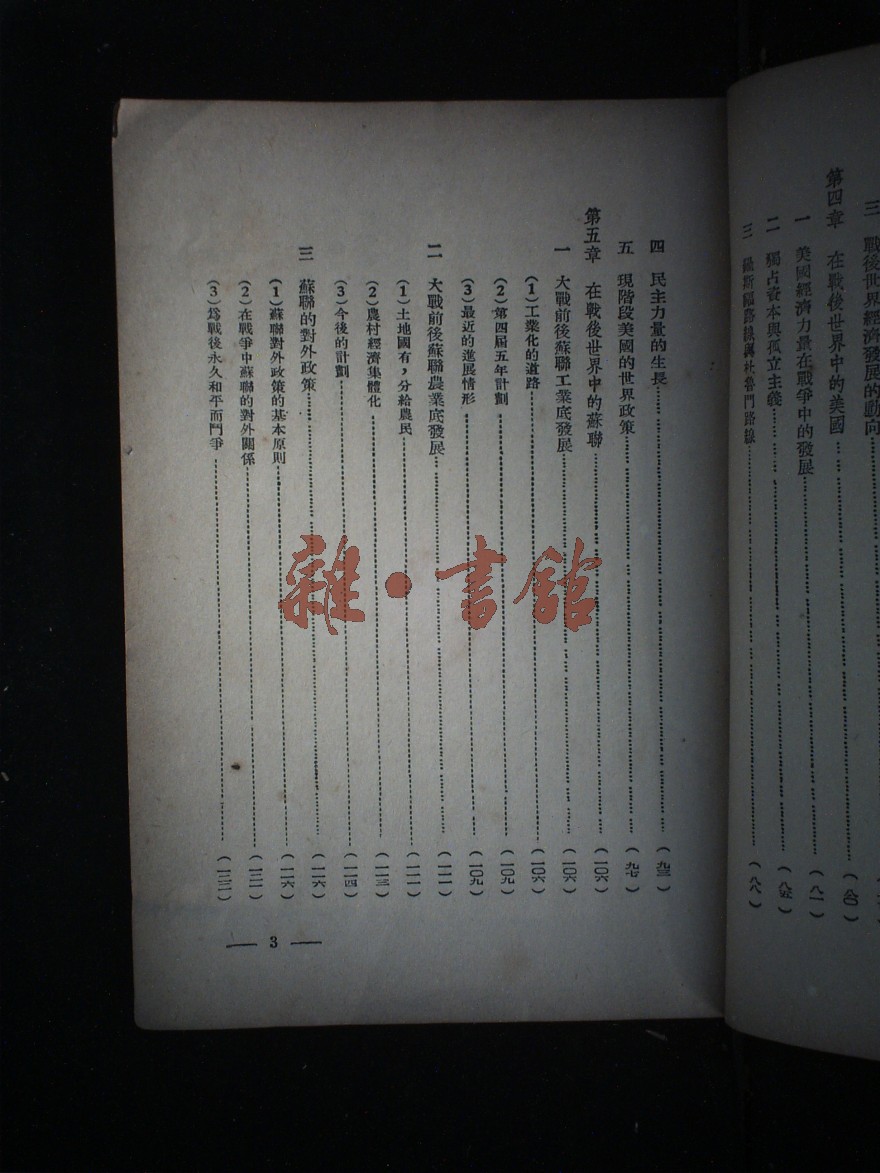 三 戰後世界經濟發展的動向
第四章 在戰後世界中的美國……(八〇)
一 美國經濟力量在戰爭中的發展……(八一)
二 獨占資本與孤立主義……(八五)
三 羅斯福路線與杜魯門路線……(八八)
四 民主力量的生長……(九三)
五 現階段美國的世界政策……(九七)
第五章 在戰後世界中的蘇聯……(一〇六)
一 大戰前後蘇聯工業底發展……(一〇六)
(1)工業化的道路……(一〇六)
(2)第四屆五年計劃……(一〇九)
(3)最近的進展情形……(一〇九)
二 大戰前後蘇聯農業底發展……(一一一)
(1)土地國有,分給農民……(一一一)
(2)農村經濟集體化……(一一三)
(3)今後的計劃……(一一四)
三 蘇聯的對外政策……(一一六)
(1)蘇聯對外政策的基本原則……(一一六)
(2)在戰爭中蘇聯的對外關係……(一二一)
(3)爲戰後永久和平而鬥爭……
— 3 —
雜·書館